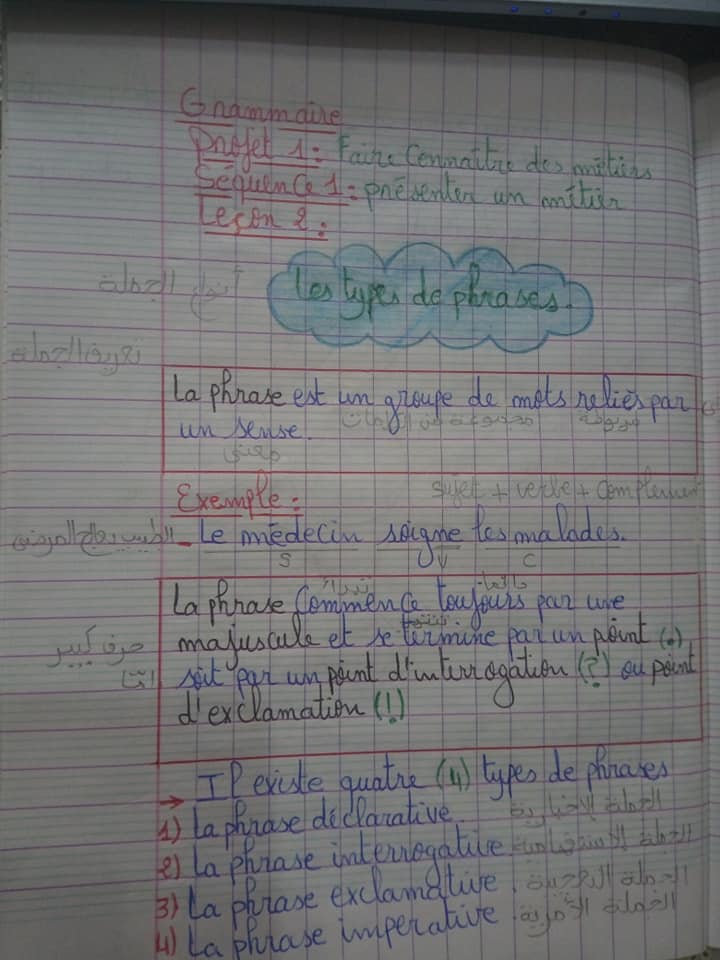 Grammaire
Projet 1: Faire Connaître des métiers
Séquence 1: présenter un métier
Leçon 2:
أنواع الجملة
Les types de phrases.
تعريف الجملة
La phrase est un groupe de mots reliés par
مجموعة من الكلمات مربوطة
un sense.
معنى
Exemple: sujet + verbe + complément
الطبيب يعالج المرضى - Le médecin soigne les malades.
S V C
تبدأ دائما
La phrase Commence toujours par une
تنتهي
حرف كبير majuscule et se termine par un point (.)
إما soit par un point d'interrogation (?) ou point
d'exclamation (!)
→ Il existe quatre (4) types de phrases
1) La phrase déclarative. الجملة الإخبارية
2) La phrase interrogative. الجملة الإستفهامية
3) La phrase exclamative. الجملة التعجبية
4) La phrase imperative. الجملة الأمرية